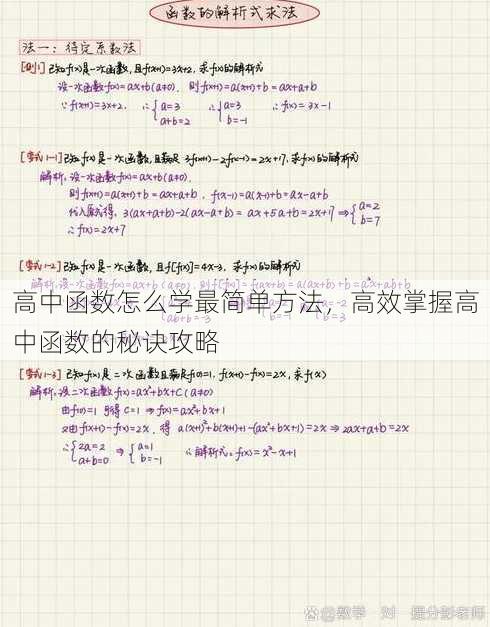 函数的解析式求法
法一：待定系数法
[例1] 已知f(x)是一次函数，且f(x+1)=3x+2，求f(x)的解析式
设一次函数f(x)=ax+b(a≠0)，则f(x+1)=a(x+1)+b=ax+a+b
∵f(x+1)=3x+2， ∴{a=3 a+b=2 ∴{a=3 b=-1 ∴f(x)=3x-1
[变式1-1] 已知f(x)是一次函数，且满足3f(x+1)-2f(x-1)=2x+17，求f(x)的解析式
解析：设一次函数f(x)=ax+b(a≠0)，
则f(x+1)=a(x+1)+b=ax+a+b，f(x-1)=a(x-1)+b=ax-a+b
代入原式得，3(ax+a+b)-2(ax-a+b)=ax+5a+b=2x+17⇒{a=2 b=7
∴f(x)=2x+7
[变式1-2] 已知f(x)是一次函数，且f[f(x)]=4x-3，求f(x)的解析式
解析：设一次函数f(x)=ax+b(a≠0)，则f[f(x)]=f(ax+b)=a(ax+b)+b=a²x+ab+b
高中函数怎么学最简单方法，高效掌握高
中函数的秘诀攻略
[变式1-3] 已知f(x)是二次函数且满足f(0)=1，f(x+1)-f(x)=2x，求f(x)
解析：设二次函数f(x)=ax²+bx+c(a≠0)
由f(0)=1 可得c=1⇒f(x)=ax²+bx+1
又由f(x+1)-f(x)=2x，得 a(x+1)²+b(x+1)+1-(ax²+bx+1)=2x⇒2ax+a+b=2x
∴{2a=2 a+b=0 ⇒{a=1 b=-1 ∴解析式：f(x)=x²-x+1